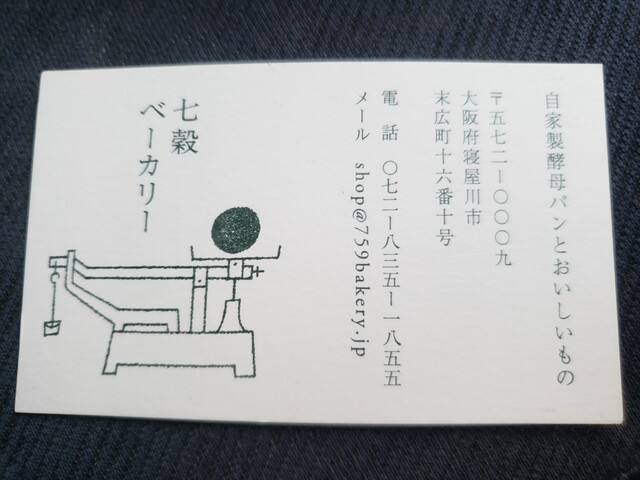 自家製酵母パンとおいしいもの
〒五七二ー〇〇〇九
大阪府寝屋川市
末広町十六番十号
電話 〇七二ー八三五ー一八五五
メール shop@759bakery.jp
七穀
ベーカリー